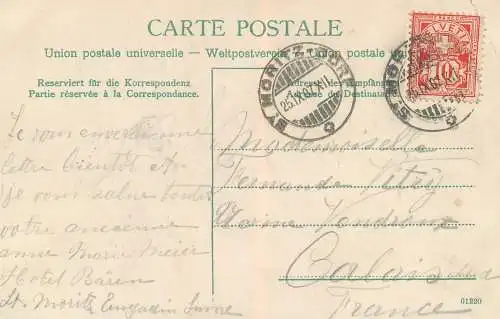 CARTE POSTALE
Union postale universelle. – Weltpostverein. – Unione postale
Reserviert für die Korrespondenz
Partie réservée à la Correspondance.
Adresse des Empfängers
Adresse du Destinataire
ST MORITZ-DORF
25.IX.07
HELVETIA
10
Je vous enverrai une
lettre bientôt
je vous salue toutes
votre ancienne
anne Marie Meier
Hotel Bären
St. Moritz Engadin Suisse
Mademoiselle
Fernande Vitry
Calais
France
01220